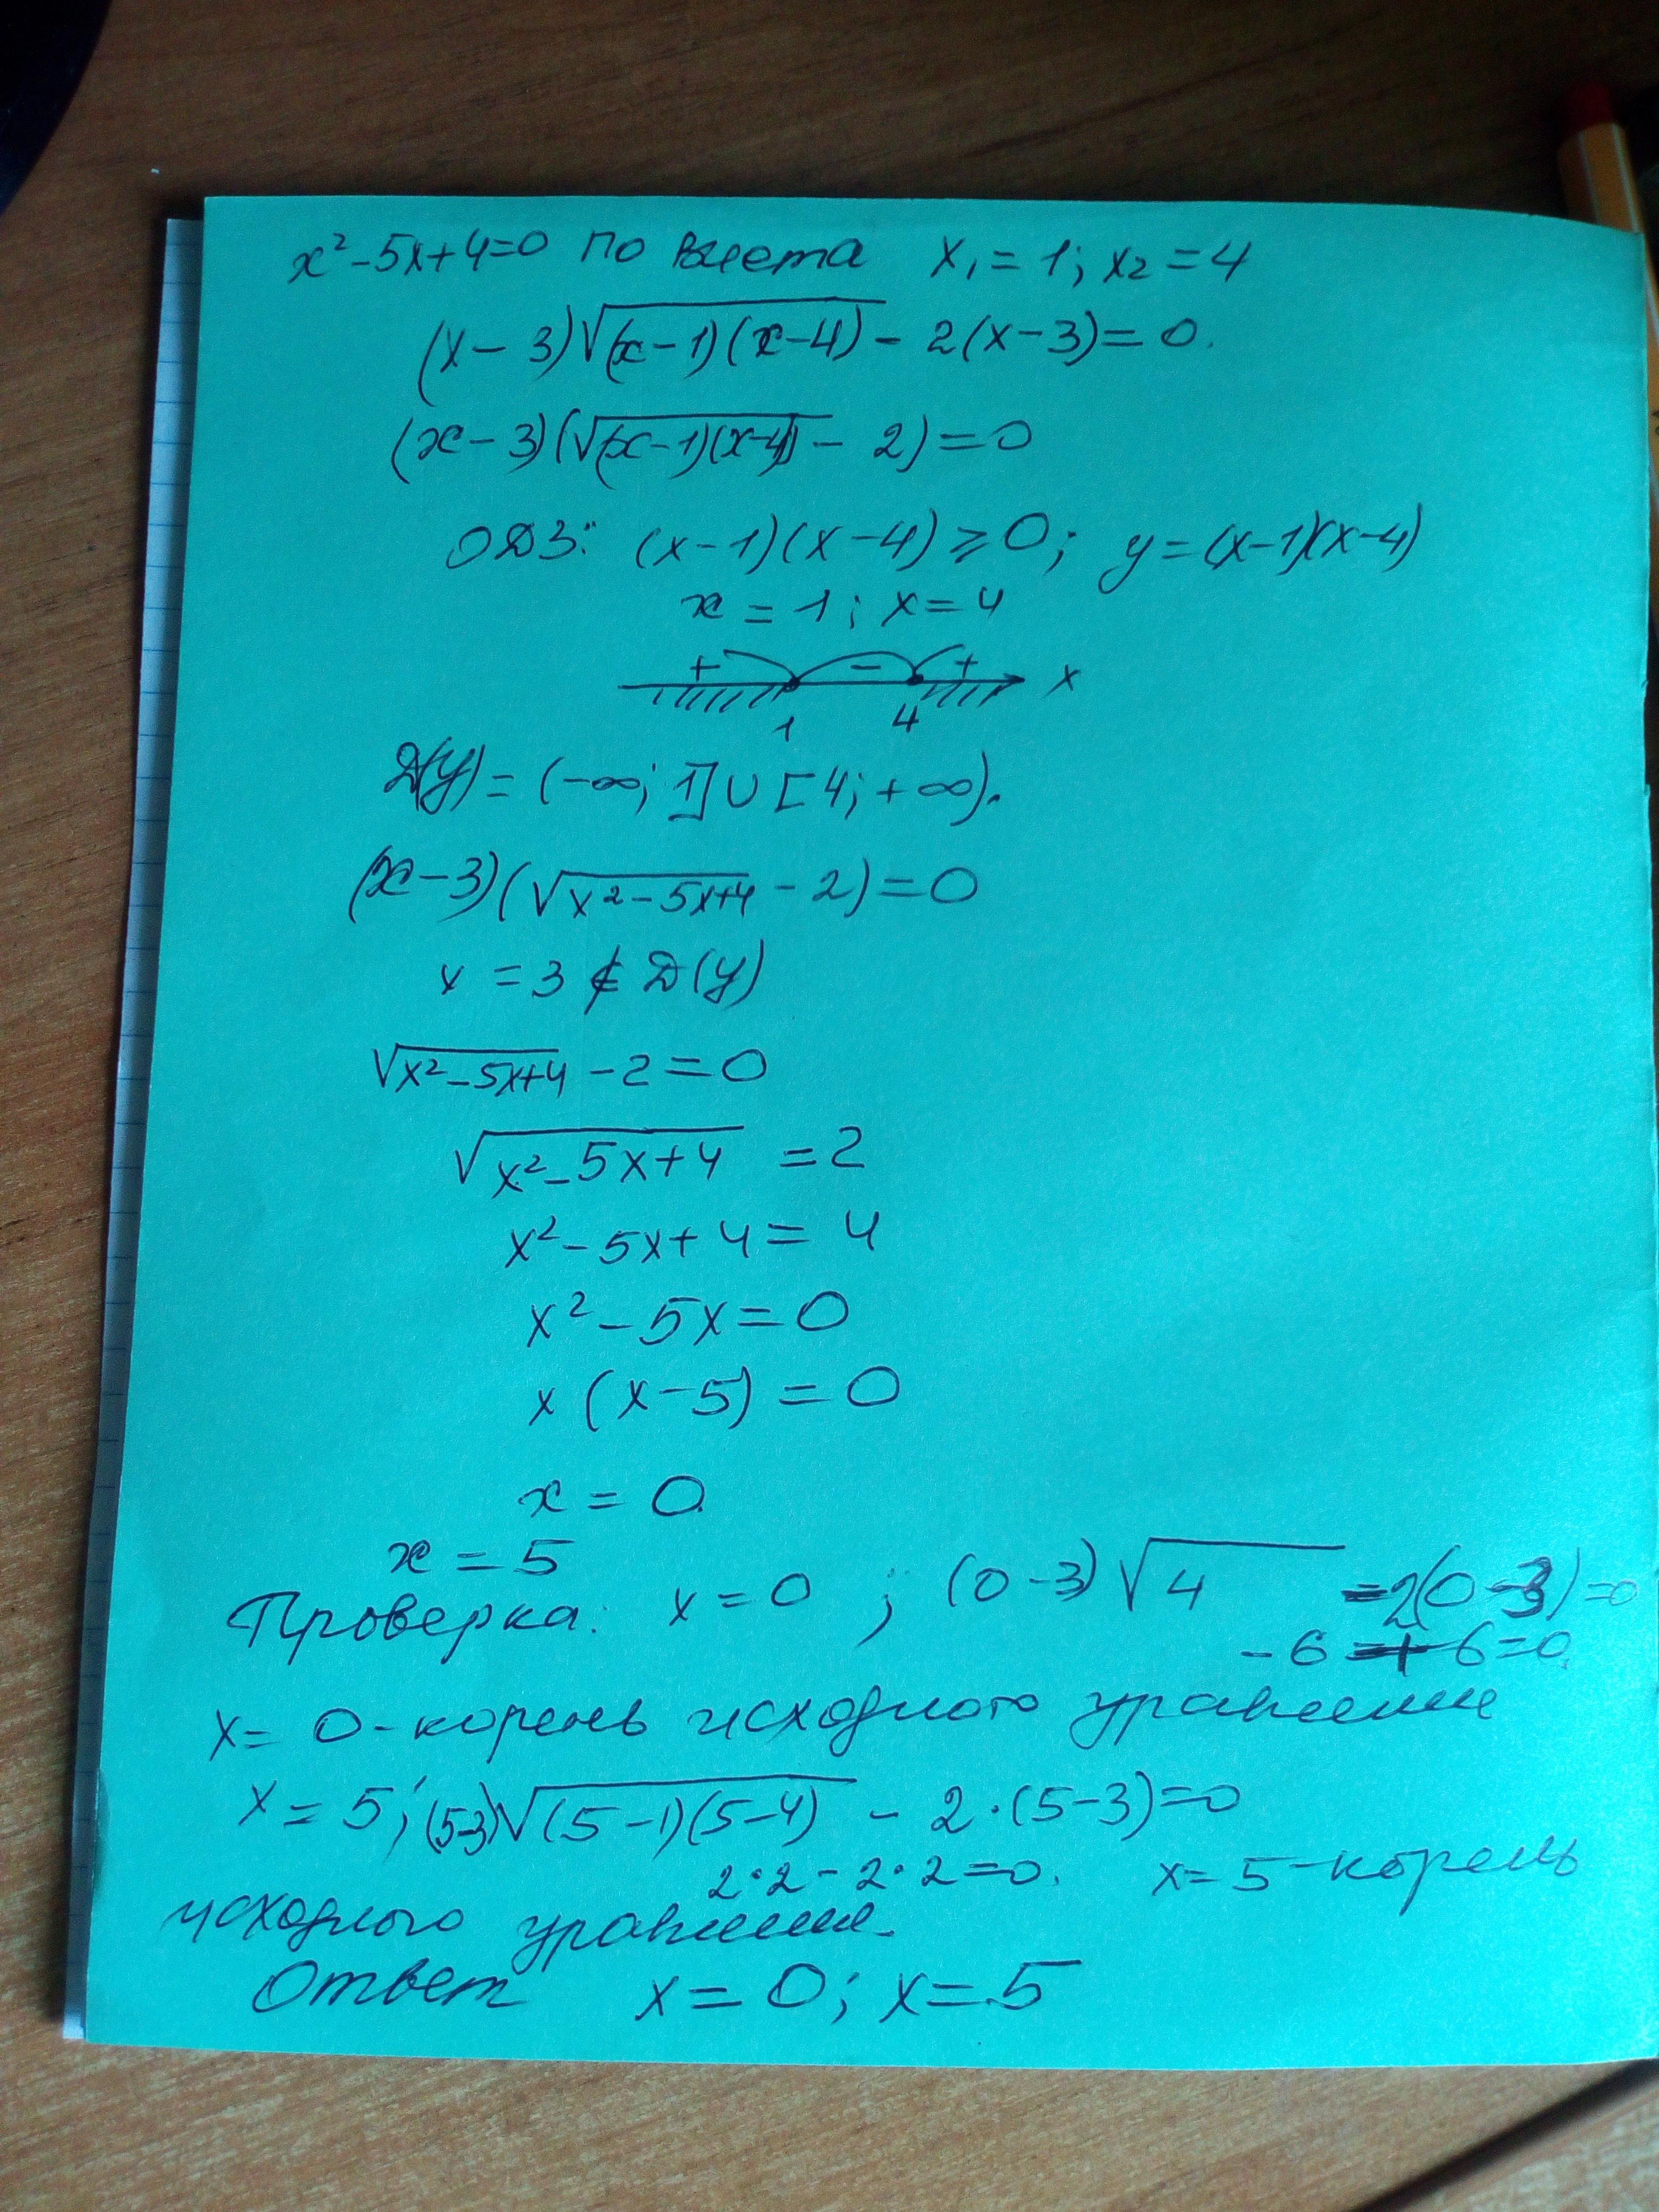 x²-5x+4=0 по Виета x₁=1; x₂=4
(x-3)√(x-1)(x-4) - 2(x-3)=0.
(x-3)(√(x-1)(x-4) - 2)=0
ОДЗ: (x-1)(x-4)⩾0; y=(x-1)(x-4)
x=1; x=4
+ - + x
1 4
Д(y)=(-∞; 1]∪[4; +∞).
(x-3)(√x²-5x+4 - 2)=0
x=3 ∉ Д(y)
√x²-5x+4 - 2=0
√x²-5x+4 =2
x²-5x+4=4
x²-5x=0
x(x-5)=0
x=0.
x=5
Проверка: x=0 ; (0-3)√4 -2(0-3)=0
-6 + 6=0.
x=0-корень исходного уравнения
x=5; (5-3)√(5-1)(5-4) - 2·(5-3)=0
2·2-2·2=0. x=5-корень
исходного уравнения.
Ответ x=0; x=5